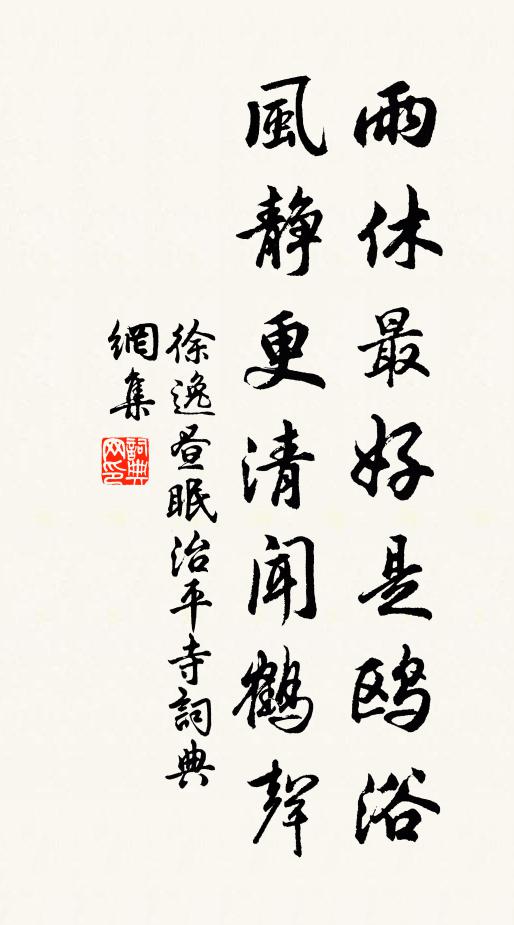 雨休最好是鸥浴
風静更清聞鶴聲
徐逸昼眠治平寺詞典
網集
詞典网印